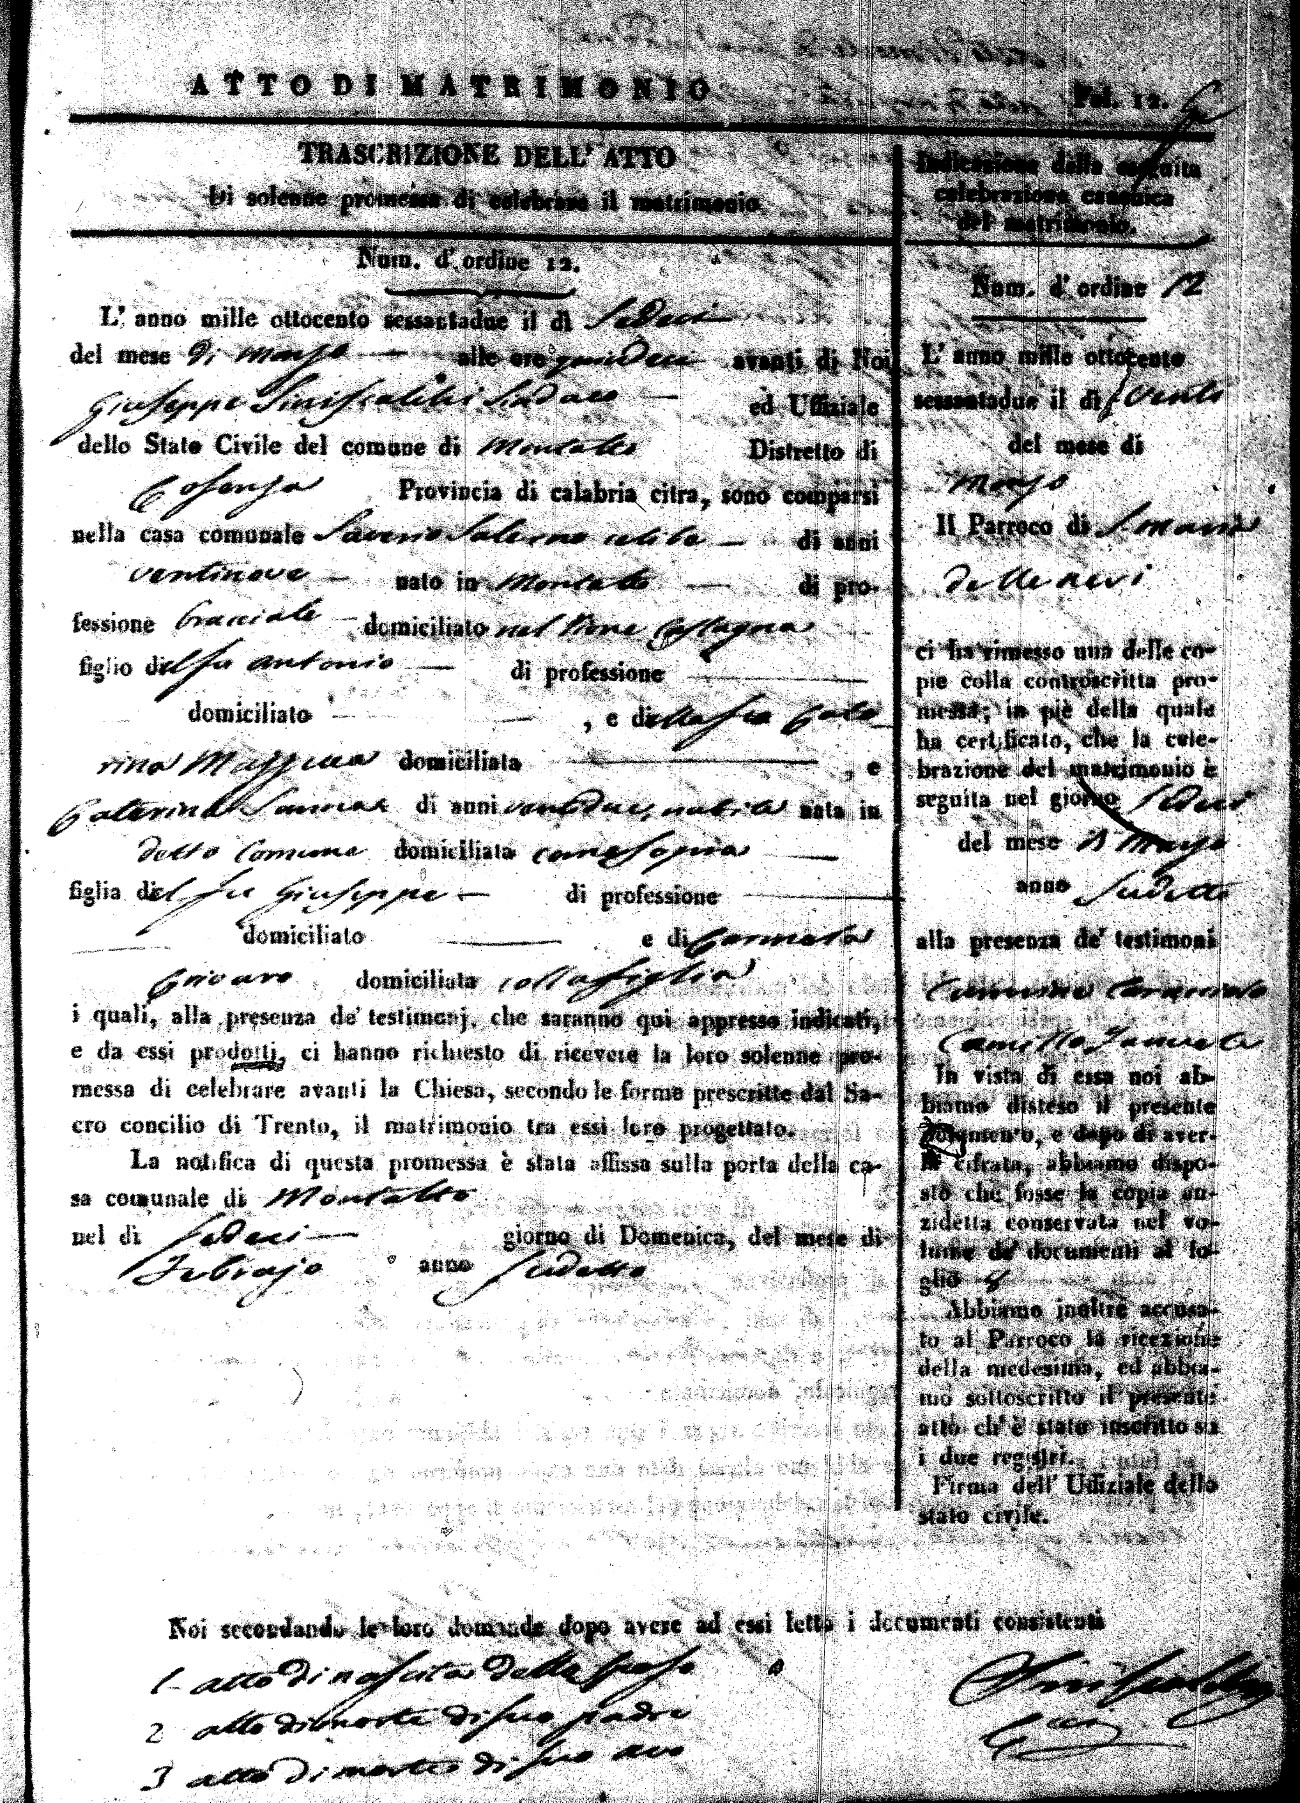 ATTO DI MATRIMONIO
Fol. 12.
TRASCRIZIONE DELL' ATTO
Di solenne promessa di celebrare il matrimonio.
Num. d' ordine 12.
L' anno mille ottocento sessantadue il dì Sedeci
del mese di Marzo alle ore quindeci avanti di Noi
Giuseppe Siniscalchi Sindaco ed Uffiziale
dello Stato Civile del comune di Montalto Distretto di
Cosenza Provincia di calabria citra, sono comparsi
nella casa comunale Saverio Salerno celibe di anni
ventinove nato in Montalto di pro-
fessione bracciale domiciliato nel Rione Castagna
figlio del fu Antonio di professione
domiciliato , e della fu Cate
rina domiciliata , e
Caterina di anni ventidue, nubile nata in
detto Comune domiciliata come sopra
figlia del fu Giuseppe di professione
domiciliato e di Carmela
domiciliata colla figlia
i quali, alla presenza de' testimonj, che saranno qui appresso indicati,
e da essi prodotti, ci hanno richiesto di ricevere la loro solenne pro-
messa di celebrare avanti la Chiesa, secondo le forme prescritte dal Sa-
cro concilio di Trento, il matrimonio tra essi loro progettato.
La notifica di questa promessa è stata affissa sulla porta della ca-
sa comunale di Montalto
nel di Sedeci giorno di Domenica, del mese di
Febrajo anno sudetto
Indicazione della seguita
celebrazione canonica
del matrimonio.
Num. d' ordine 12
L' anno mille ottocento
sessantadue il dì venti
del mese di
Marzo
Il Parroco di S. Maria
della nevi
ci ha rimesso una delle co-
pie colla controscritta pro-
messa; in piè della quale
ha certificato, che la cele-
brazione del matrimonio è
seguita nel giorno Sedeci
del mese di Marzo
anno sudetto
alla presenza de' testimoni
Caracciolo
Camillo
In vista di essa noi ab-
biamo disteso il presente
notamento, e dopo di aver-
la cifrata, abbiamo dispo-
sto che fosse la copia an-
zidetta conservata nel vo-
lume de' documenti al fo-
glio
Abbiamo inoltre accusa-
to al Parroco la ricezione
della medesima, ed abbia-
mo sottoscritto il presente
atto ch' è stato inscritto su
i due registri.
Firma dell' Uffiziale dello
stato civile.
Noi secondando le loro domande dopo avere ad essi letto i documenti consistenti
1 atto di nascita dello sposo
2 atto di morte di suo padre
3 atto di morte di suo avo
Siniscalchi